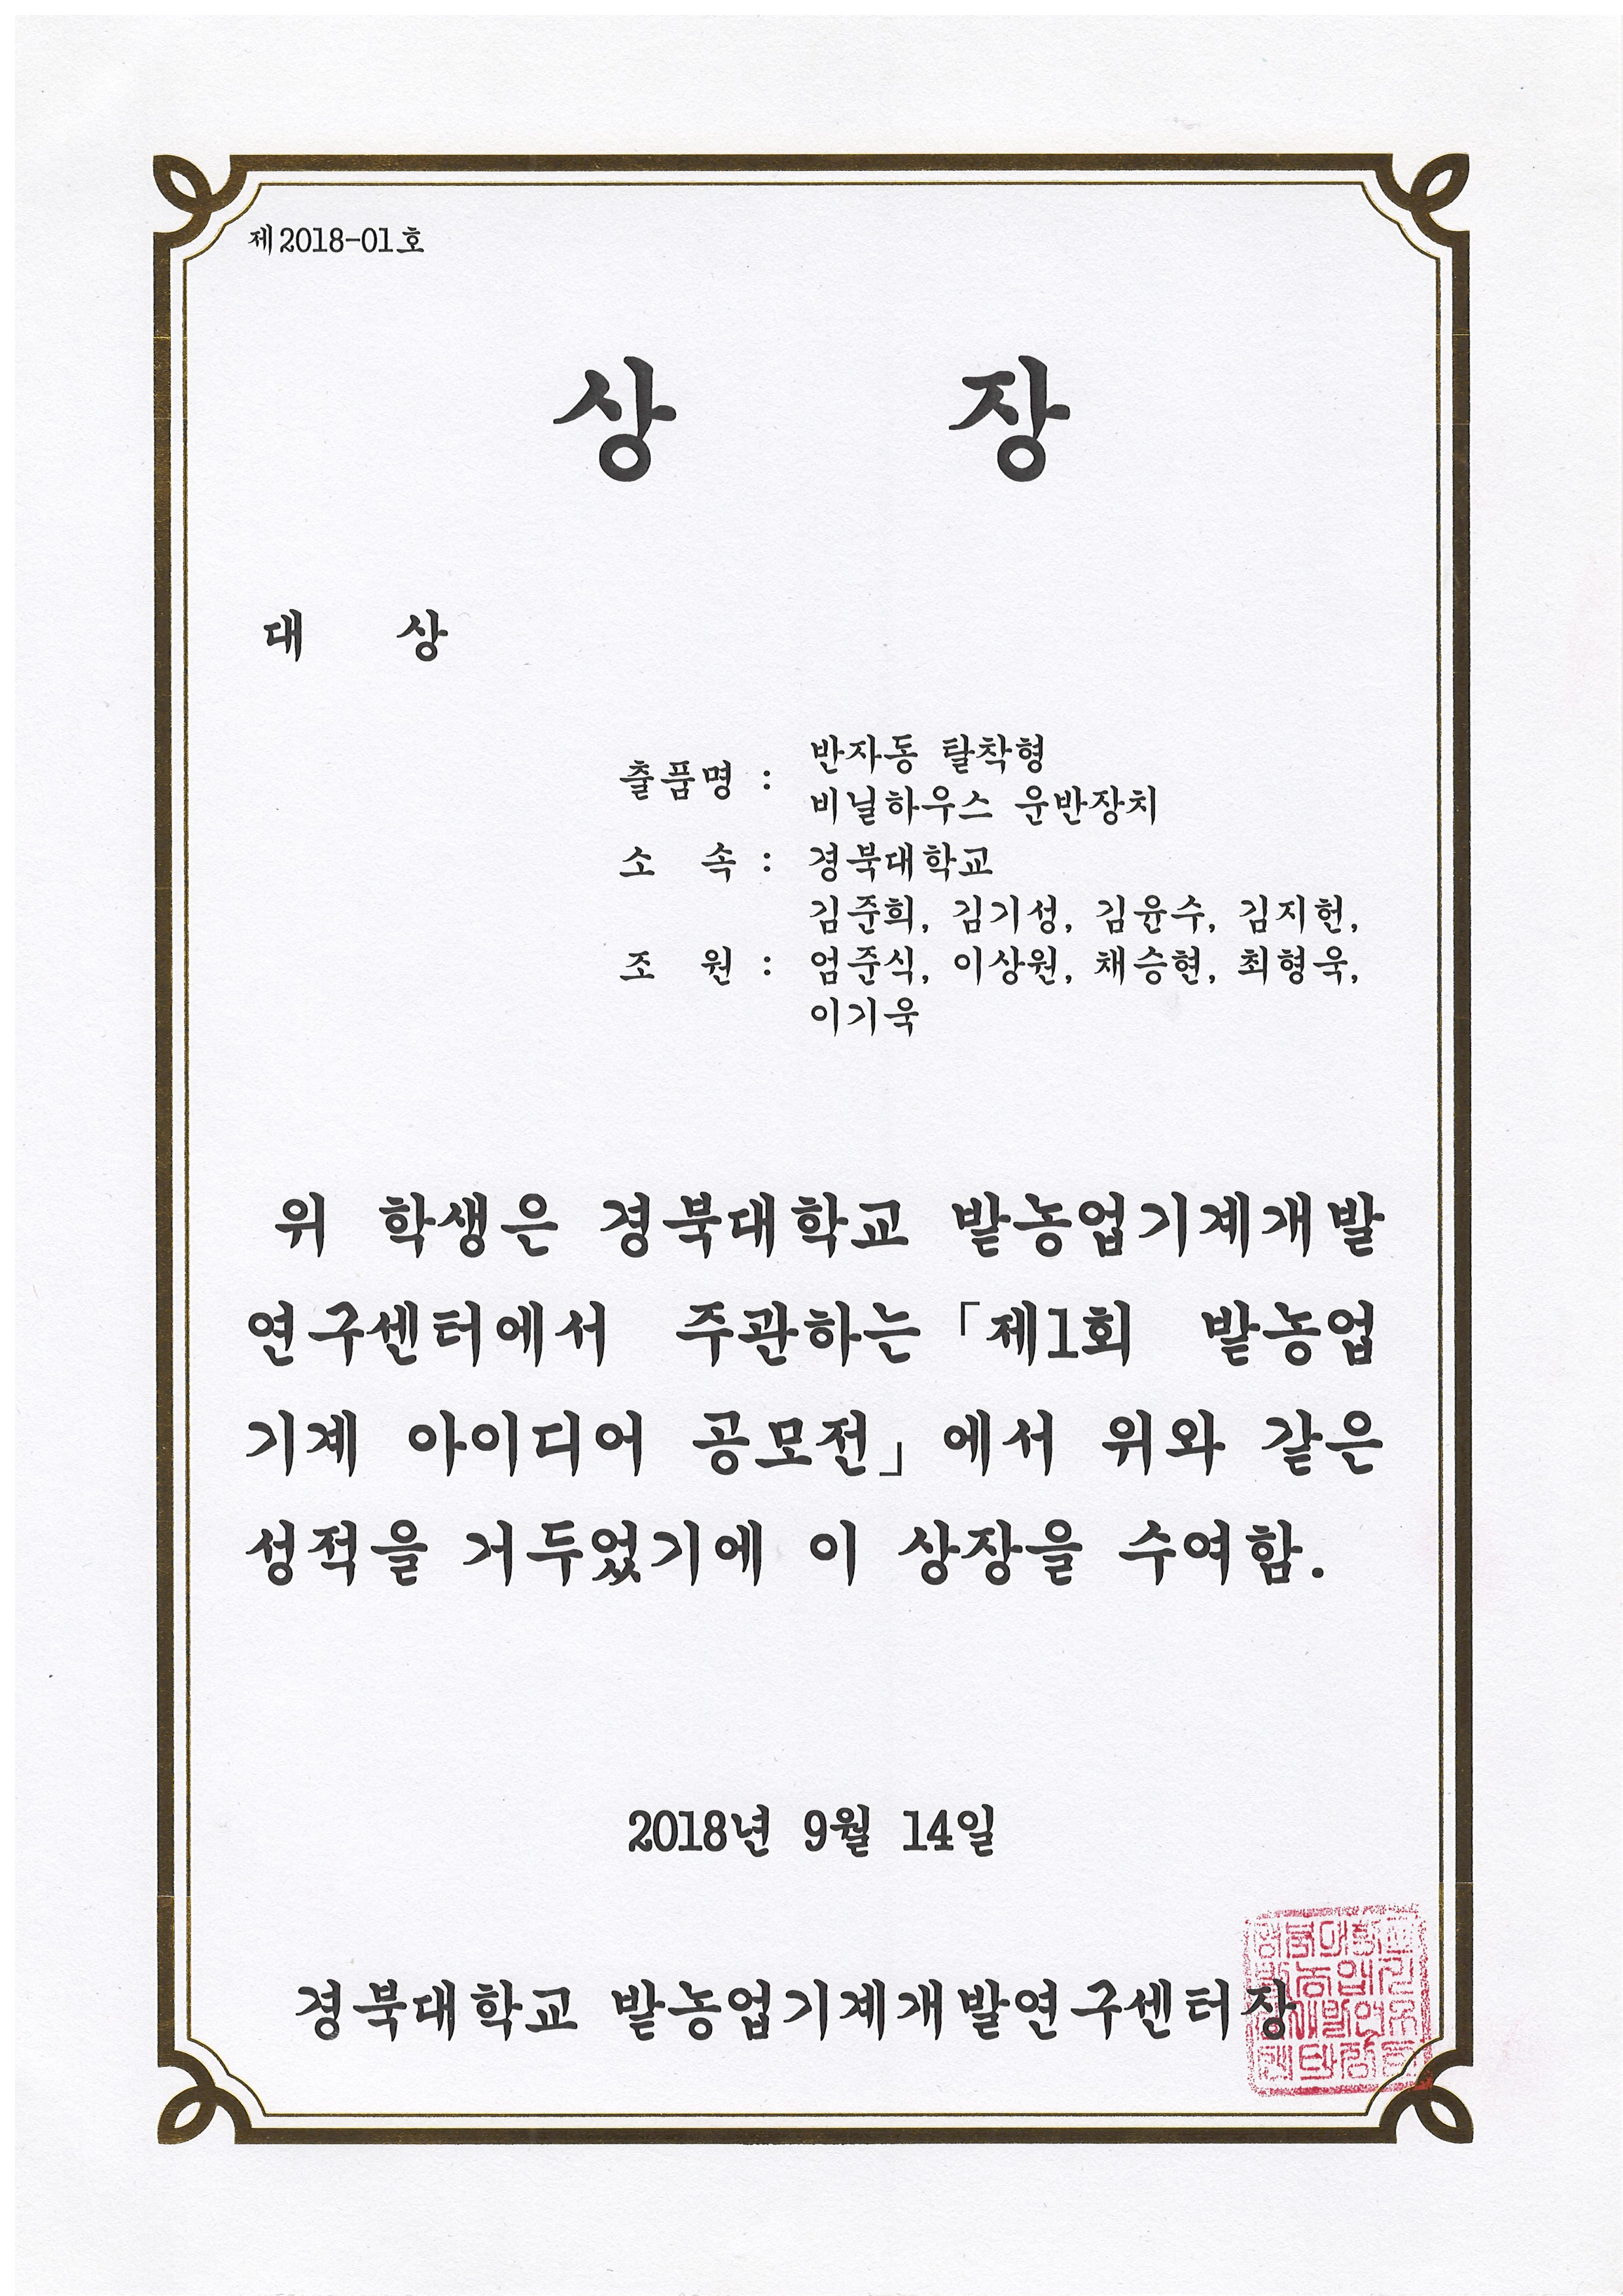 제2018-01호
상 장
대 상
출품명 : 반자동 탈착형
비닐하우스 운반장치
소 속 : 경북대학교
조 원 : 김준희, 김기성, 김윤수, 김지헌,
엄준식, 이상원, 채승현, 최형욱,
이기욱
위 학생은 경북대학교 밭농업기계개발
연구센터에서 주관하는「제1회 밭농업
기계 아이디어 공모전」에서 위와 같은
성적을 거두었기에 이 상장을 수여함.
2018년 9월 14일
경북대학교 밭농업기계개발연구센터장